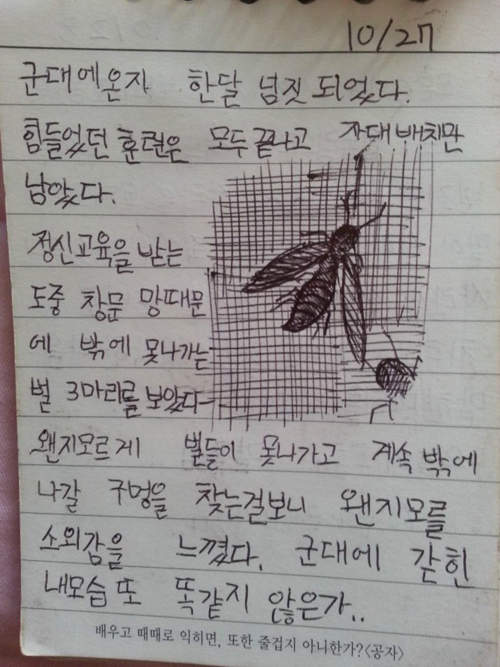 10/27
군대에온지 한달 넘짓 되었다.
힘들었던 훈련은 모두 끝나고 자대배치만
남았다.
정신교육을 받는
도중 창문 망때문
에 밖에 못나가는
벌 3마리를 보았다
왠지모르게 벌들이 못나가고 계속 밖에
나갈 구멍을 찾는걸보니 왠지모를
소외감을 느꼈다. 군대에 갇힌
내모습 또 똑같지 않은가..
배우고 때때로 익히면, 또한 줄겁지 아니한가?<공자>